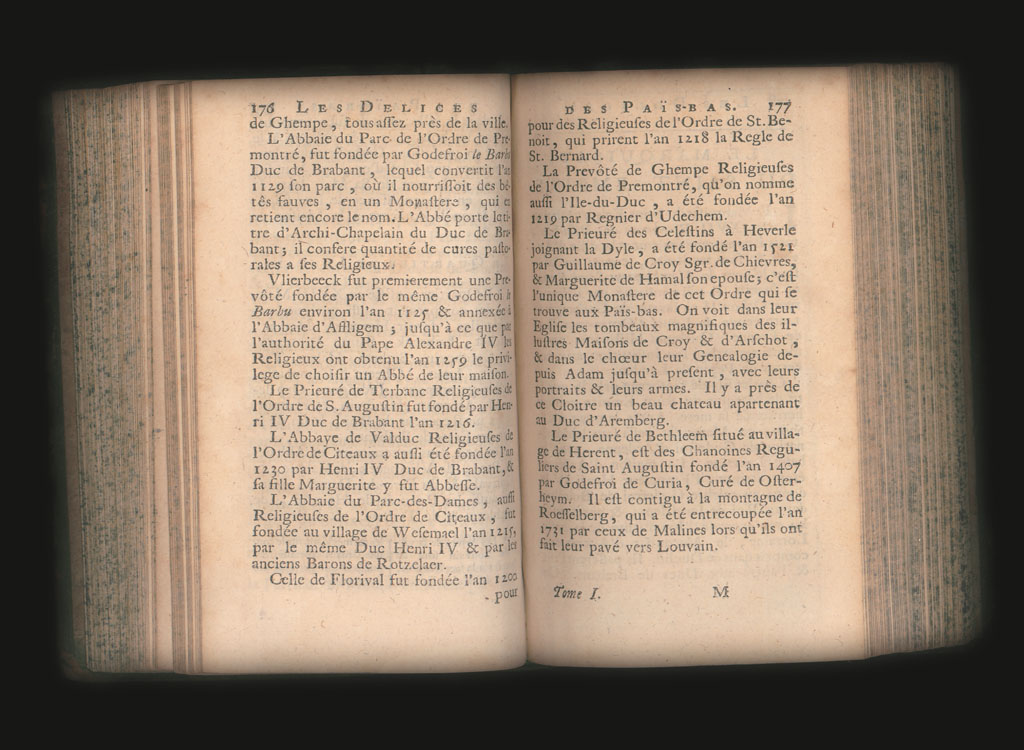 176 LES DELICES
de Ghempe, tous assez près de la ville.
L'Abbaie du Parc de l'Ordre de Pre-
montré, fut fondée par Godefroi le Barbu
Duc de Brabant, lequel convertit l'an
1129 son parc, où il nourrissoit des bê-
tês fauves, en un Monastere, qui en
retient encore le nom. L'Abbé porte le ti-
tre d'Archi-Chapelain du Duc de Bra-
bant; il confere quantité de cures pasto-
rales a ses Religieux.
Vlierbeeck fut premierement une Pre-
vôté fondée par le même Godefroi le
Barbu environ l'an 1125 & annexée à
l'Abbaie d'Affligem; jusqu'à ce que par
l'authorité du Pape Alexandre IV les
Religieux ont obtenu l'an 1259 le privi-
lege de choisir un Abbé de leur maison.
Le Prieuré de Terbanc Religieuses de
l'Ordre de S. Augustin fut fondé par Hen-
ri IV Duc de Brabant l'an 1216.
L'Abbaye de Valduc Religieuses de
l'Ordre de Citeaux a aussi été fondée l'an
1230 par Henri IV Duc de Brabant, &
sa fille Marguerite y fut Abbesse.
L'Abbaie du Parc-des-Dames, aussi
Religieuses de l'Ordre de Citeaux, fut
fondée au village de Wesemael l'an 1215,
par le même Duc Henri IV & par les
anciens Barons de Rotzelaer.
Celle de Florival fut fondée l'an 1200
pour
DES PAÏS-BAS. 177
pour des Religieuses de l'Ordre de St. Be-
noit, qui prirent l'an 1218 la Regle de
St. Bernard.
La Prevôté de Ghempe Religieuses
de l'Ordre de Premontré, qu'on nomme
aussi l'Ile-du-Duc, a été fondée l'an
1219 par Regnier d'Udechem.
Le Prieuré des Celestins à Heverle
joignant la Dyle, a été fondé l'an 1521
par Guillaume de Croy Sgr. de Chievres,
& Marguerite de Hamal son epouse; c'est
l'unique Monastere de cet Ordre qui se
trouve aux Païs-bas. On voit dans leur
Eglise les tombeaux magnifiques des il-
lustres Maisons de Croy & d'Arschot,
& dans le chœur leur Genealogie de-
puis Adam jusqu'à present, avec leurs
portraits & leurs armes. Il y a près de
ce Cloitre un beau chateau apartenant
au Duc d'Aremberg.
Le Prieuré de Bethleem situé au villa-
ge de Herent, est des Chanoines Regu-
liers de Saint Augustin fondé l'an 1407
par Godefroi de Curia, Curé de Oster-
heym. Il est contigu à la montagne de
Roesselberg, qui a été entrecoupée l'an
1731 par ceux de Malines lors qu'ils ont
fait leur pavé vers Louvain.
Tome I. M